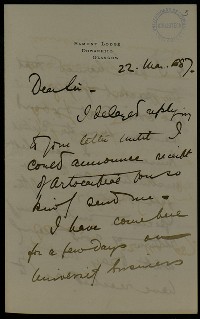 Lodge
Glasgow
22. Mar. 1887.
Dear Sir -
I delayed replying
to your letter until I
could announce receipt
of Artocarpus you so
kindly send me -
I have come here
for a few days on
University business